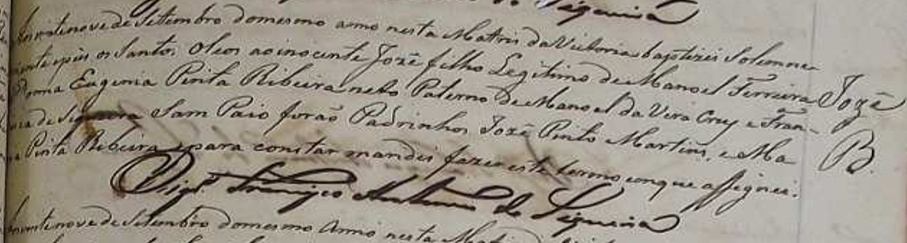 de Siqueira
vinte nove de Setembro do mesmo anno nesta Matris da Victoria baptizei Solemne
mente e pus os Santos Oleos ao inocente Jozê filho Legitimo de Manoel Ferreira
Eugenia Pinta Ribeira neto Paterno de Manoel da Vera Cruz e Fran-
de Siqueira Sam Paio forão Padrinhos Jozê Pinto Martins, e Ma
Pinta Ribeira e para constar mandei fazer este termo em que assignei.
Vigr.o Francisco Antonio de Siqueira
Jozê
B.
vinte nove de Setembro do mesmo Anno nesta